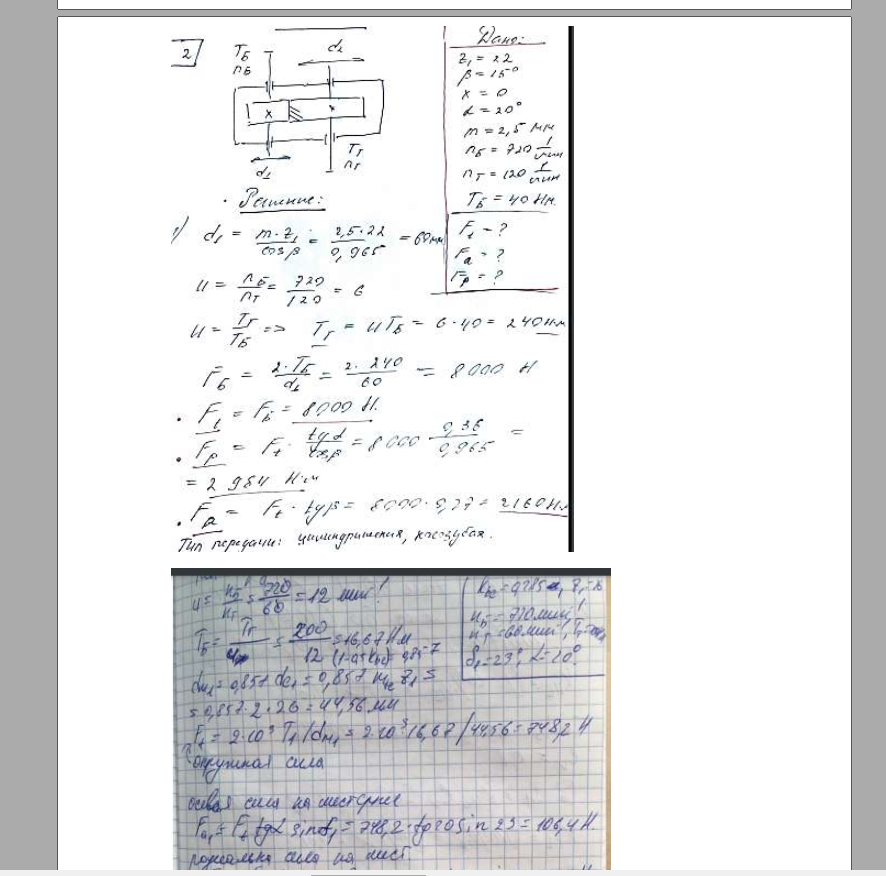 2
T_Б
n_Б
d_2
x
x
T_T
n_T
d_1
Дано:
z_1 = 22
β = 15°
x = 0
α = 20°
m = 2,5 мм
n_Б = 720 1/мин
n_T = 120 1/мин
T_Б = 40 Нм
F_t - ?
F_a = ?
F_p = ?
Решение:
1) d_1 = m·z_1/cosβ = 2,5·22/0,965 = 60мм
u = n_Б/n_T = 720/120 = 6
u = T_T/T_Б => T_T = uT_Б = 6·40 = 240Нм
F_Б = 2·T_Б/d_1 = 2·240/60 = 8000 Н
F_t = F_Б = 8000 Н.
F_p = F_t · tgα/cosβ = 8000 0,36/0,965 =
= 2984 Н·м
F_a = F_t · tgβ = 8000·0,27 = 2160Нм
Тип передачи: цилиндрическая, косозубая.
u = n_Б/n_T = 720/60 = 12
n_Б = 720
T_Б = T_T = 200/12 = 16,67 Нм
δ_1 = 23°, α = 20°
= 0,857·2·26 = 44,56 мм
F_t = 2·10³ T_1/d_м1 = 2·10³·16,67/44,56 = 748,2 Н
окружная сила
осевая сила на шестерне
F_a1 = F_t tgα sin δ_1 = 748,2·tg20 sin 23 = 106,4 Н.
сила на шест.